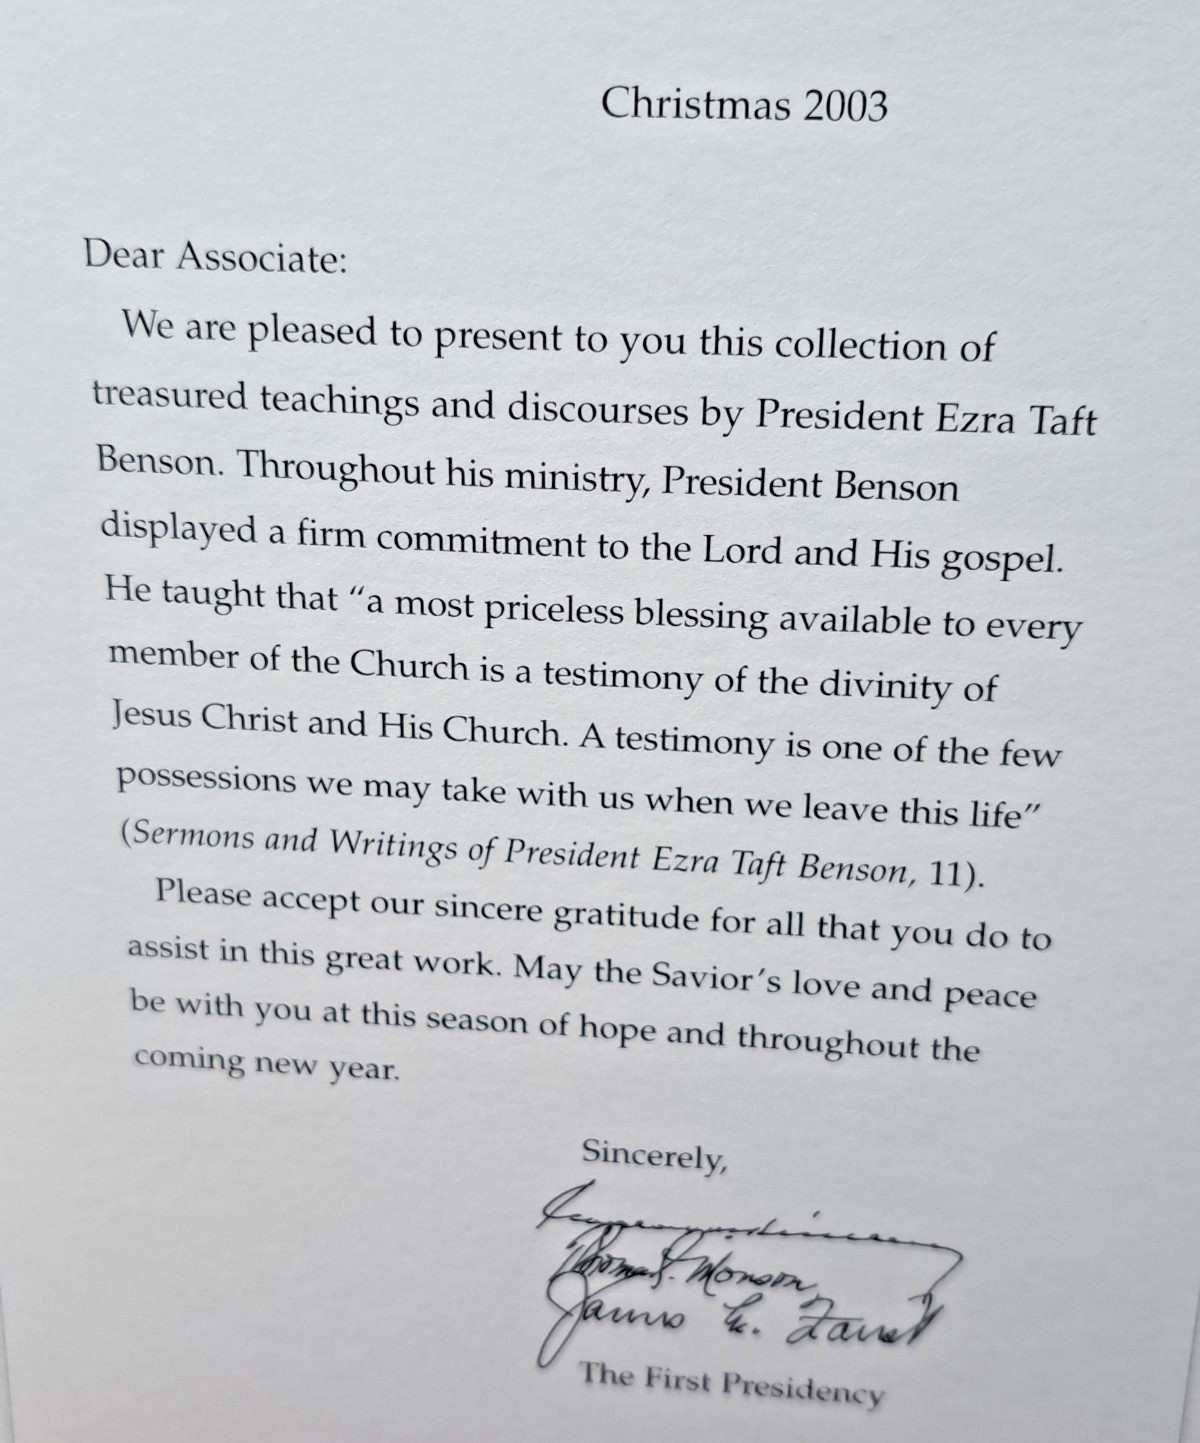 Christmas 2003
Dear Associate:
We are pleased to present to you this collection of
treasured teachings and discourses by President Ezra Taft
Benson. Throughout his ministry, President Benson
displayed a firm commitment to the Lord and His gospel.
He taught that “a most priceless blessing available to every
member of the Church is a testimony of the divinity of
Jesus Christ and His Church. A testimony is one of the few
possessions we may take with us when we leave this life”
(Sermons and Writings of President Ezra Taft Benson, 11).
Please accept our sincere gratitude for all that you do to
assist in this great work. May the Savior’s love and peace
be with you at this season of hope and throughout the
coming new year.
Sincerely,
Thomas S. Monson
James E. Faust
The First Presidency